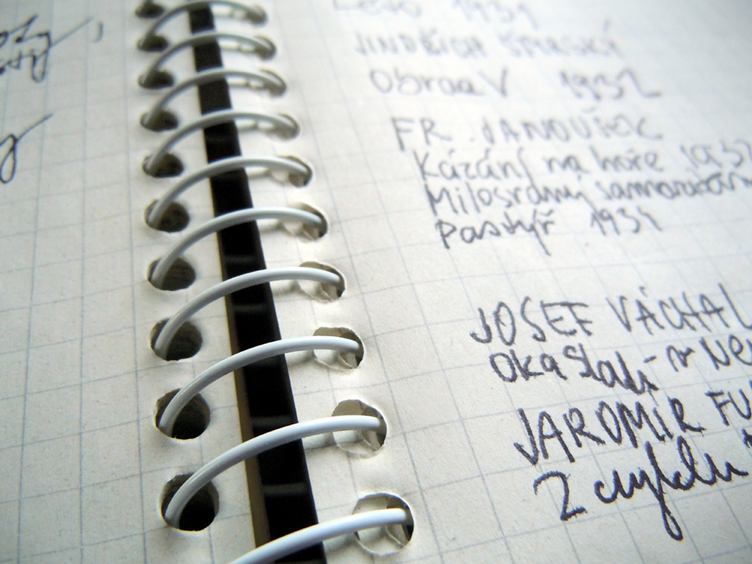 Léto 1931
JINDŘICH ŠTYRSKÝ
Obraz V 1932
FR. JANOUŠEK
Kázání na hoře 1932
Milosrdný samaritán
Pastýř 1934
JOSEF VÁCHAL
v
JAROMÍR FU
Z cyklu